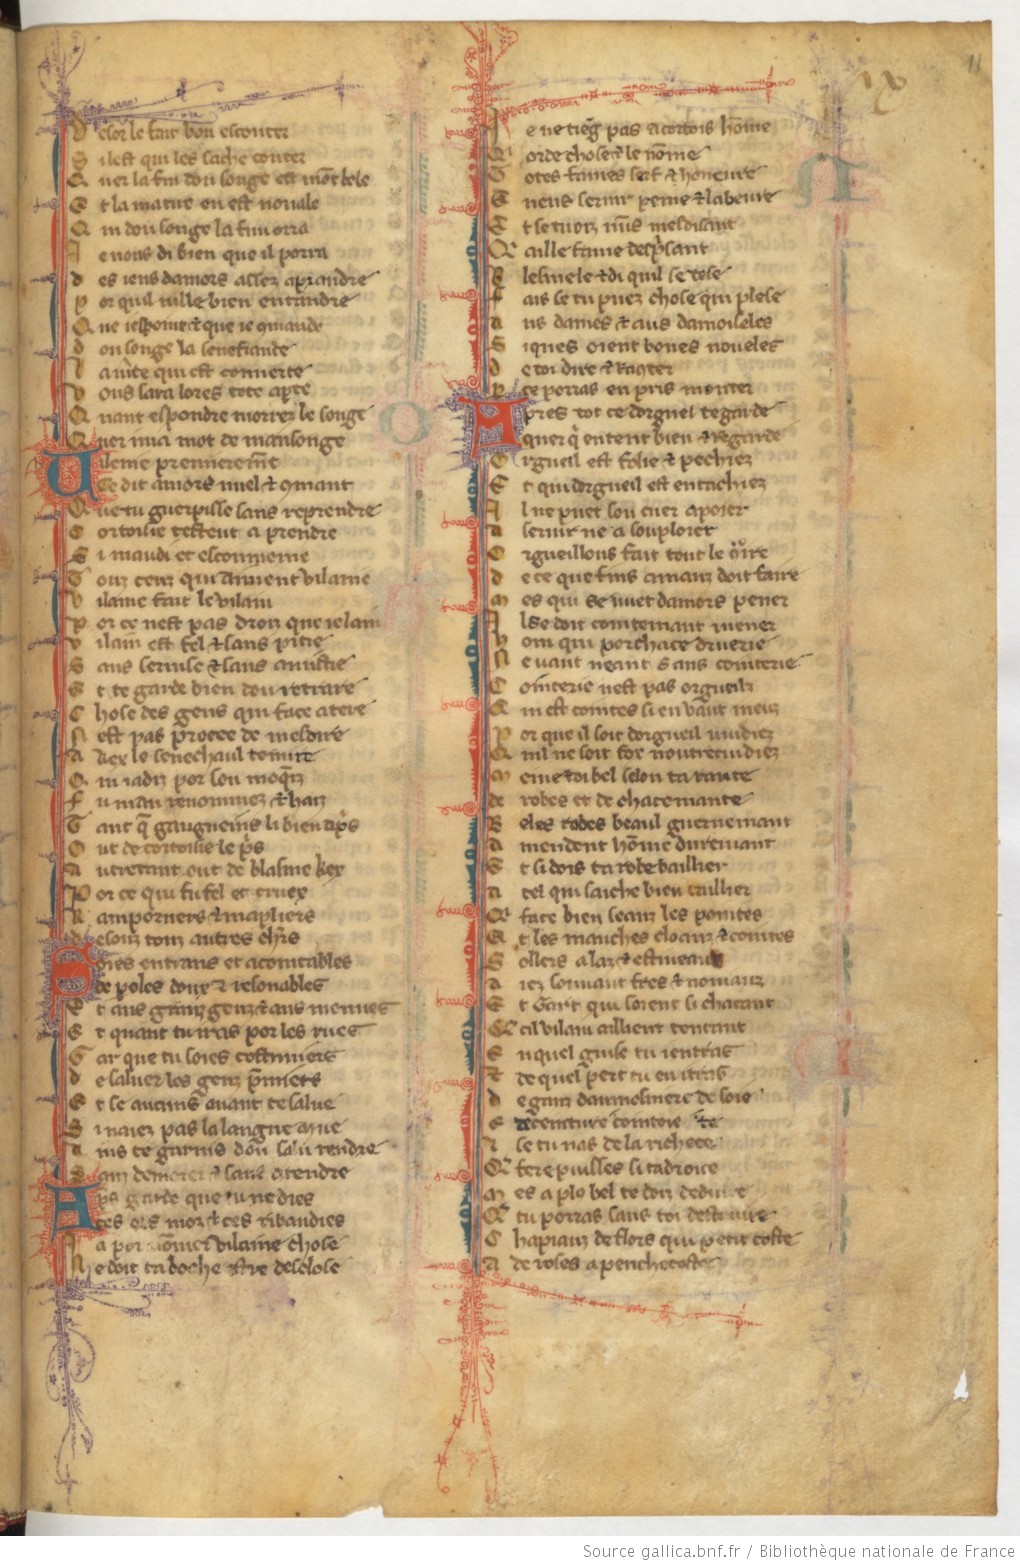 D esor le fait bon escouter
S il est qui les sache conter
Q uer la fin dou songe est mōt bele
E t la matire en est novale
Q ui dou songe la fin orra
J e vous di bien que il porra
d es ieus damors assez aprandre
p or quil vuille bien entandre
Q ue
d ou songe la senefiance
L a uite qui est couverte
V ous sara lores tote apte
Q uant espondre morrez le songe
Q uer nui a mot de mansonge
Vilenie premierem̄t
Ce dit amors vuel et 9mant
Q ue tu guerpisse sans reprendre
C ortoisie a prendre
S i maudi et escommenie
T ouz ceuz qui aiment vilanie
V ilanie fait le vilain
P or ce nest pas droiz que ie lain
V ilain est fel & sans pitie
S ans servise & sans amistie
E t te garde bien dou retraire
C hose des gens qui face a teire
N est pas proece de mesdire
A kex le seneschaul te mire
Q ui iadiz por son moq̄iz
F u mau renommez & haiz
T ant q̄ gaugueins li bien ap̄s
O ut de cortoisie le p̄s
A utretant out de blasme kex
P or ce qui fu fel et cruex
R amporniers & mapliers
d esouz touz autres ch̄rs
Soies entrans et acointables
de poles douz & resonables
E t aus granz genz & aus menues
E t quant tu iras por les rues
G ar que tu soies costumiers
d e saluer les genz p̄miers
E t se aucuns avant te salue
S i naiez pas la langue mue
A ins te garnis dou salu rendre
S anz demorer & sans atendre
Ap̄s garde que tu ne dies
Ces orz moz & ces ribaudies
J a por nōmer vilaine chose
N e doit ta boche estre desclose
ix
11
J e ne tieg pas a cortois hōme
Q i orde chose & le nōme
T otes fames serf & honeure
E neus servir peine & labeure
E t se tu orz nuns mesdisant
Q i aille fame desp̄sant
B lesme le & di quil se tese
F ais se tu puez chose qui plese
A us dames & aus damoiseles
S i ques oient bones noveles
d e toi dire & raconter
P ce porras en pris monter
Apres tot ce dorguel te garde
quer q̄ entent bien & regarde
O rgueil est folie & pechiez
E t qui dorgueil est entachiez
I l ne puet son cuer apoier
A servir ne a souploier
O rgueillous fait tout le 9̄tire
d e ce que fins amanz doit faire
M es qui se vuet damors pener
I l se doit cointemant mener
H om qui porchace druerie
N e vaut neant sans cointerie
C ointerie nest pas orgueilz
Q ui est cointes si en vaut meuz
P or que il soit dorgueil vuidiez
Q uil ne soit fox noutrecuidiez
M eine toi bel selon ta rante
de robes et de chacemante
B eles robes beaul guernemant
A mendent hōme duremant
E t si dois ta robe baillier
A tel qui saiche bien taillier
Q i face bien seanz les pointes
E t les manches cloanz & cointes
S ollers a laz & estiveaux
A iez souvant fres & noviauz
E t gart qui soient si chacant
Q i cil vilain aillient tencant
E n quel guise tu ientras
E t de quel part tu en itras
d e ganz daumosniere de soie
E de centeure cointoie te
E se tu nas de la richece
Q i fere puisses si tadroice
M es a plo bel te doiz deduire
Q i tu porras sans toi destruire
C hapiauz de flors qui petit coste
A de roses a penthecoste
Source gallica.bnf.fr / Bibliothèque nationale de France